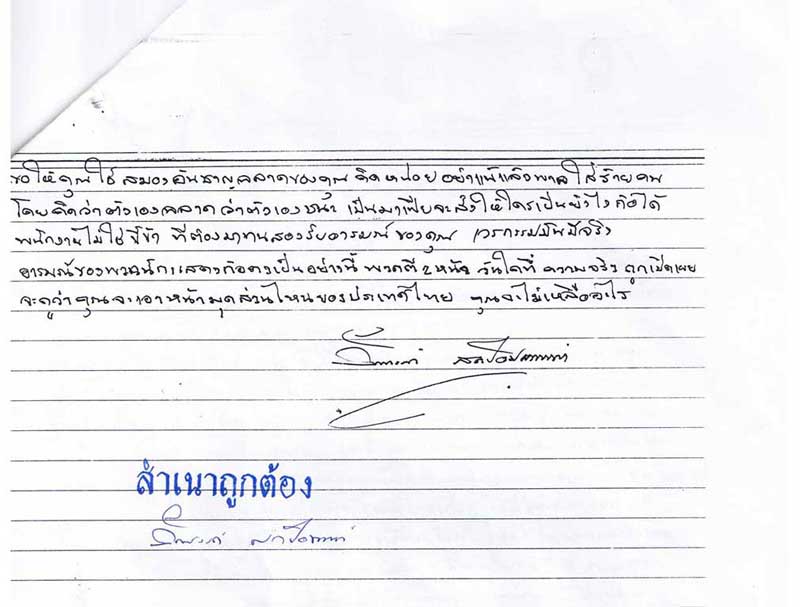 ขอให้คุณใช้ สมองอันชาญฉลาดของคุณ คิดหน่อย อย่าแพ้แล้วพาล ใส่ร้ายคน
โดยคิดว่าตัวเองฉลาด ว่าตัวเองชนะ เป็นมาเฟียจะสั่งให้ใครเป็นยังไงก็ได้
พนักงานไม่ใช่ขี้ข้า ที่ต้องมาทนรองรับอารมณ์ของคุณ เวรกรรมมันมีจริง
อารมณ์ของพวกนักแสดงก็คงเป็นอย่างนี้ พวกตี 2 หน้า วันใดที่ ความจริง ถูกเปิดเผย
จะดูว่าคุณจะเอาหน้ามุดส่วนไหนของประเทศไทย คุณจะไม่เหลืออะไร
สำเนาถูกต้อง